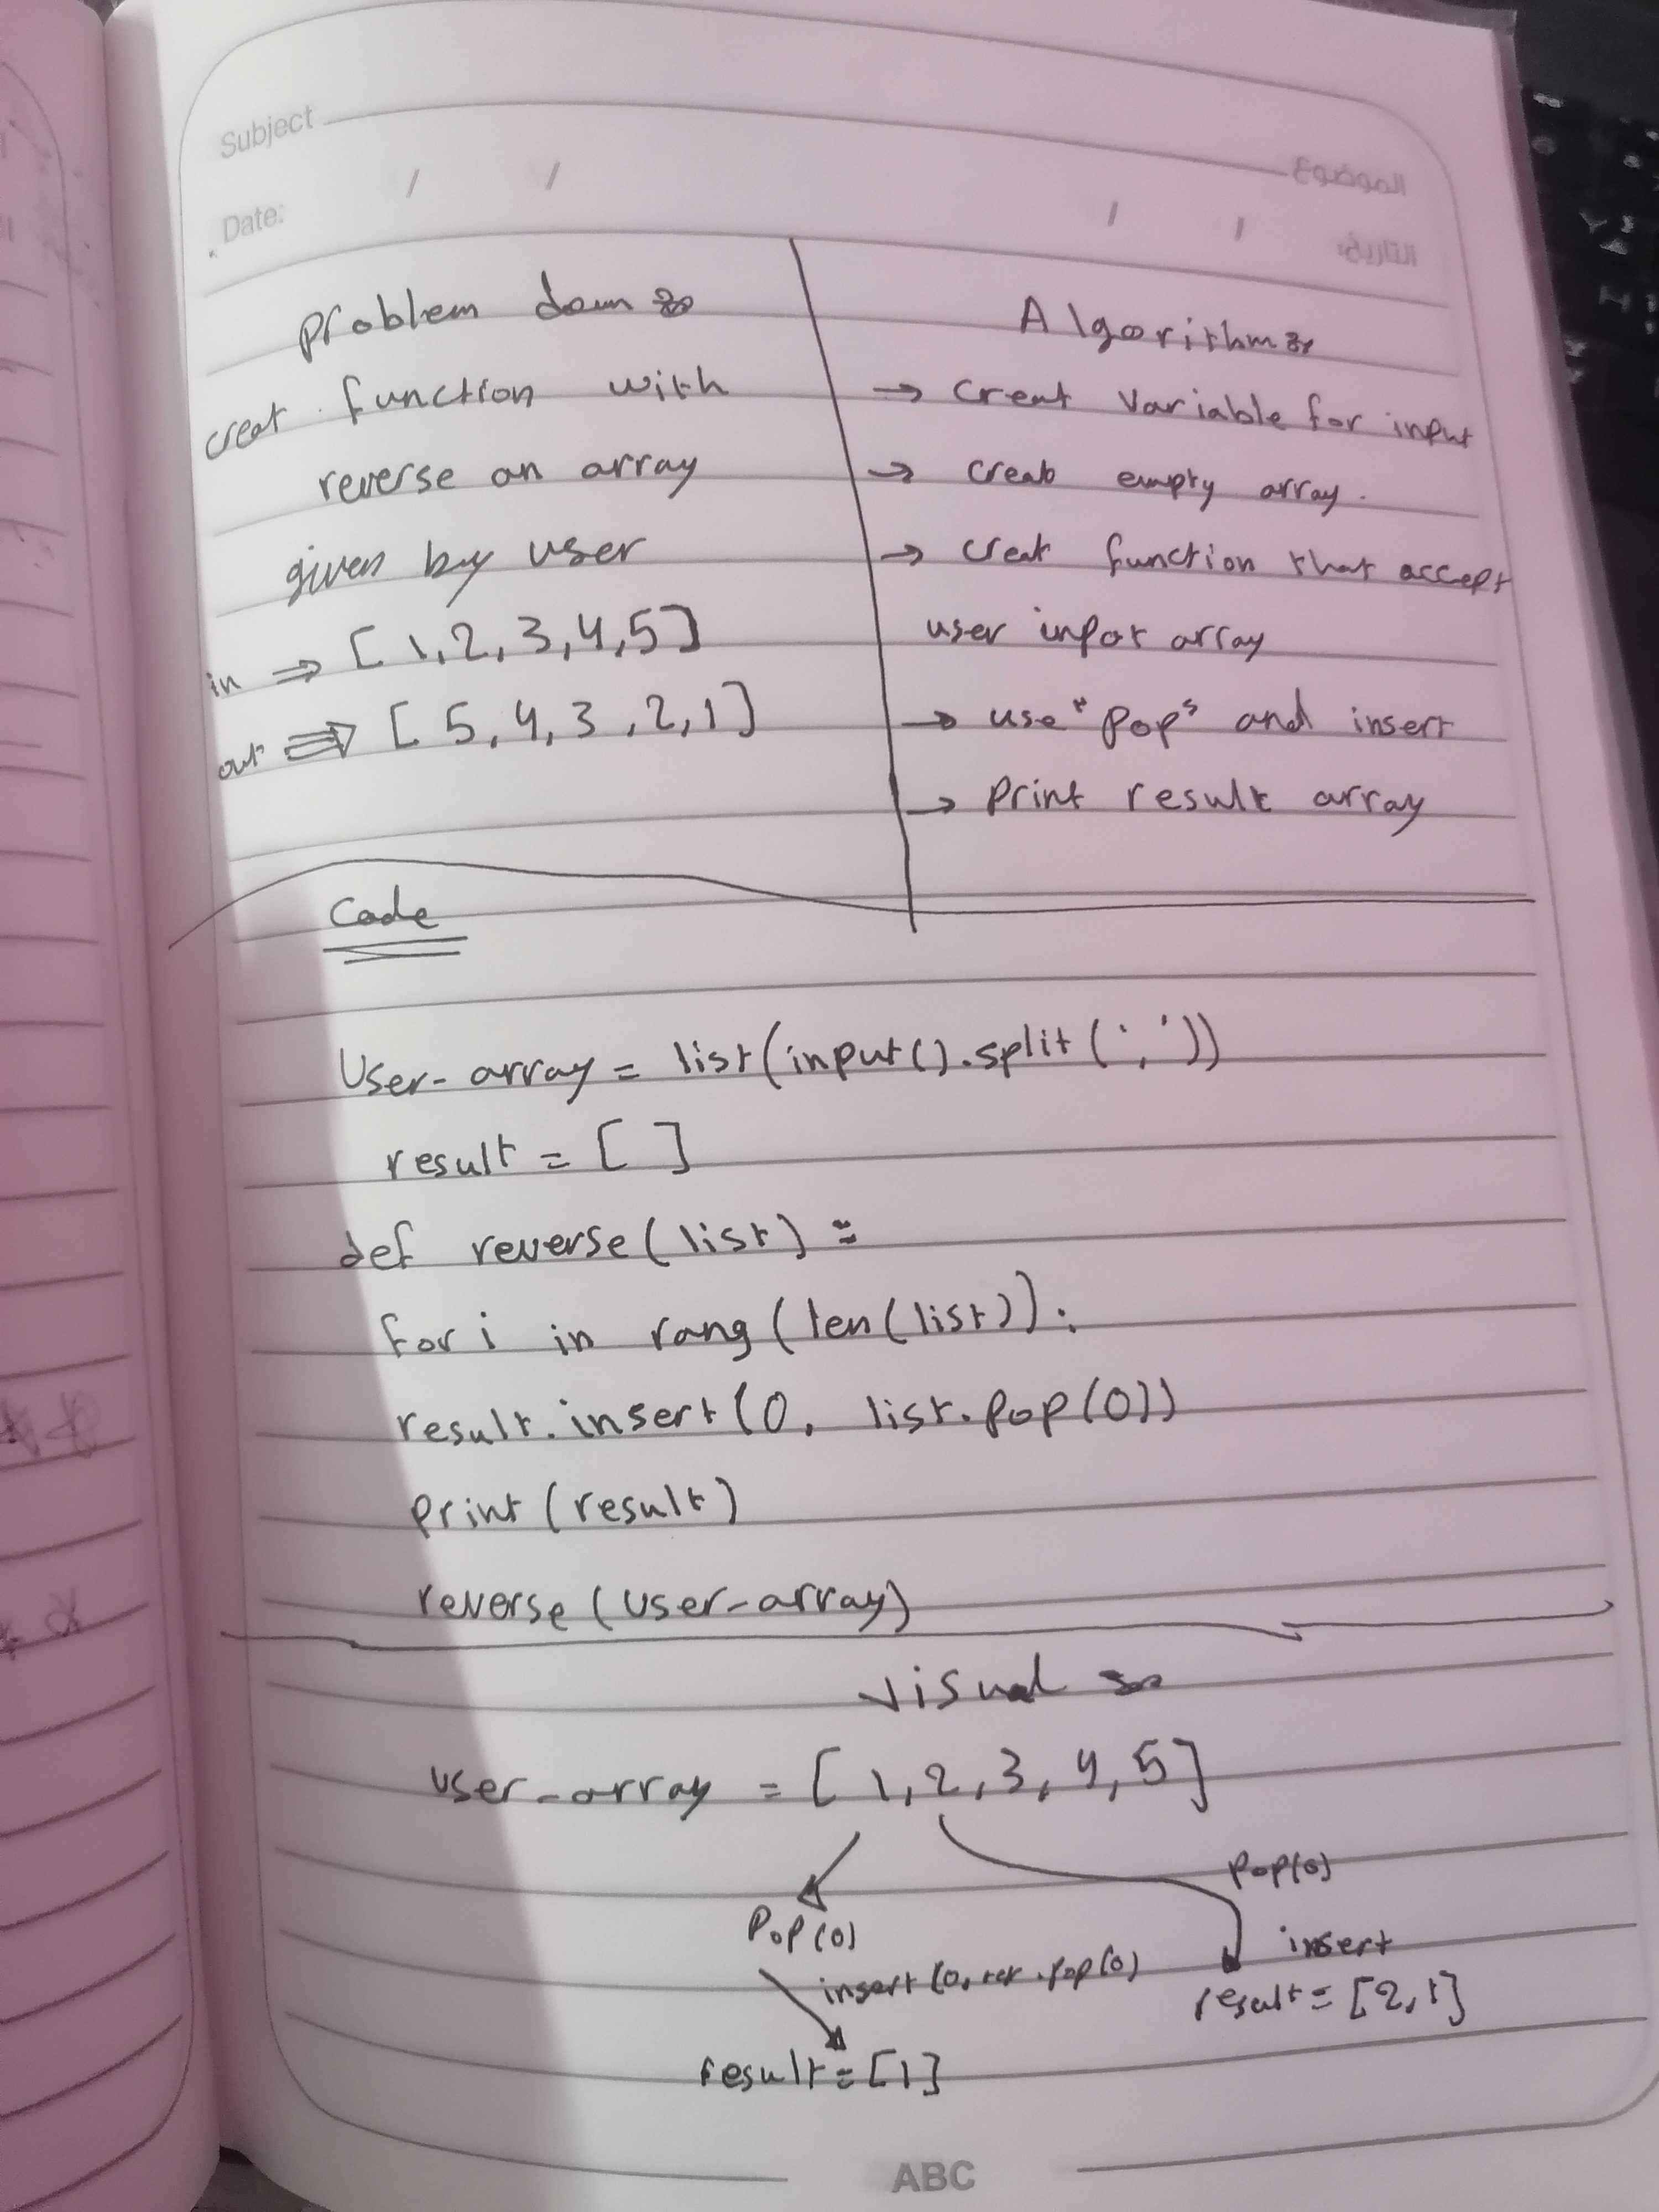 Subject
الموضوع
Date: / /
/ / التاريخ:
problem dom
creat function with
reverse an array
given by user
in ⇒ [1,2,3,4,5]
out ⇒ [5,4,3,2,1]
Algorithm
→ creat variable for input
→ creat empty array.
→ creat function that accept
user inpot array
→ use "pop" and insert
→ print result array
Code
User-array = list(input().split(','))
result = []
def reverse(list):
for i in rang(len(list)):
result.insert(0, list.pop(0))
print(result)
reverse(user-array)
Visual
user-array = [1,2,3,4,5]
Pop(0)
Pop(0)
insert
insert(0, .pop(0)
result = [2,1]
result = [1]
ABC